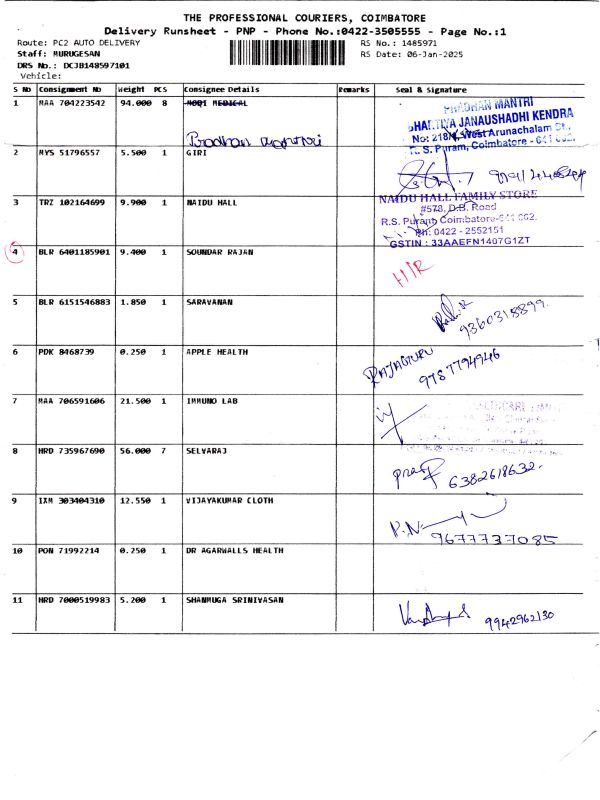 THE PROFESSIONAL COURIERS, COIMBATORE
Delivery Runsheet - PNP - Phone No.:0422-3505555 - Page No.:1
Route: PC2 AUTO DELIVERY
RS No.: 1485971
Staff: MURUGESAN
RS Date: 06-Jan-2025
DRS No.: DCJB148597101
Vehicle:
S No Consignment No Weight PCS Consignee Details Remarks Seal & Signature
1 MAA 704223542 94.000 8 MODI MEDICAL
Pradhan mantri
PRADHAN MANTRI
BHARTIYA JANAUSHADHI KENDRA
No: 218/ West Arunachalam St.,
R. S. Puram, Coimbatore - 641 002.
2 MYS 51796557 5.500 1 GIRI
3 TRZ 102164699 9.900 1 NAIDU HALL
NAIDU HALL FAMILY STORE
#578, D.B. Road
R.S. Puram Coimbatore-641 002.
Ph: 0422 - 2552151
GSTIN : 33AAEFN1407G1ZT
4 BLR 6401185901 9.400 1 SOUNDAR RAJAN
H/R
5 BLR 6151546883 1.850 1 SARAVANAN
9360318899
6 PDK 8468739 0.250 1 APPLE HEALTH
RAJAGURU
9787794946
7 MAA 706591606 21.500 1 IMMUNO LAB
8 HRD 735967690 56.000 7 SELVARAJ
6382618632
9 IXM 303404310 12.550 1 VIJAYAKUMAR CLOTH
9677737085
10 PON 71992214 0.250 1 DR AGARWALLS HEALTH
11 HRD 7000519983 5.200 1 SHANMUGA SRINIVASAN
9942962130